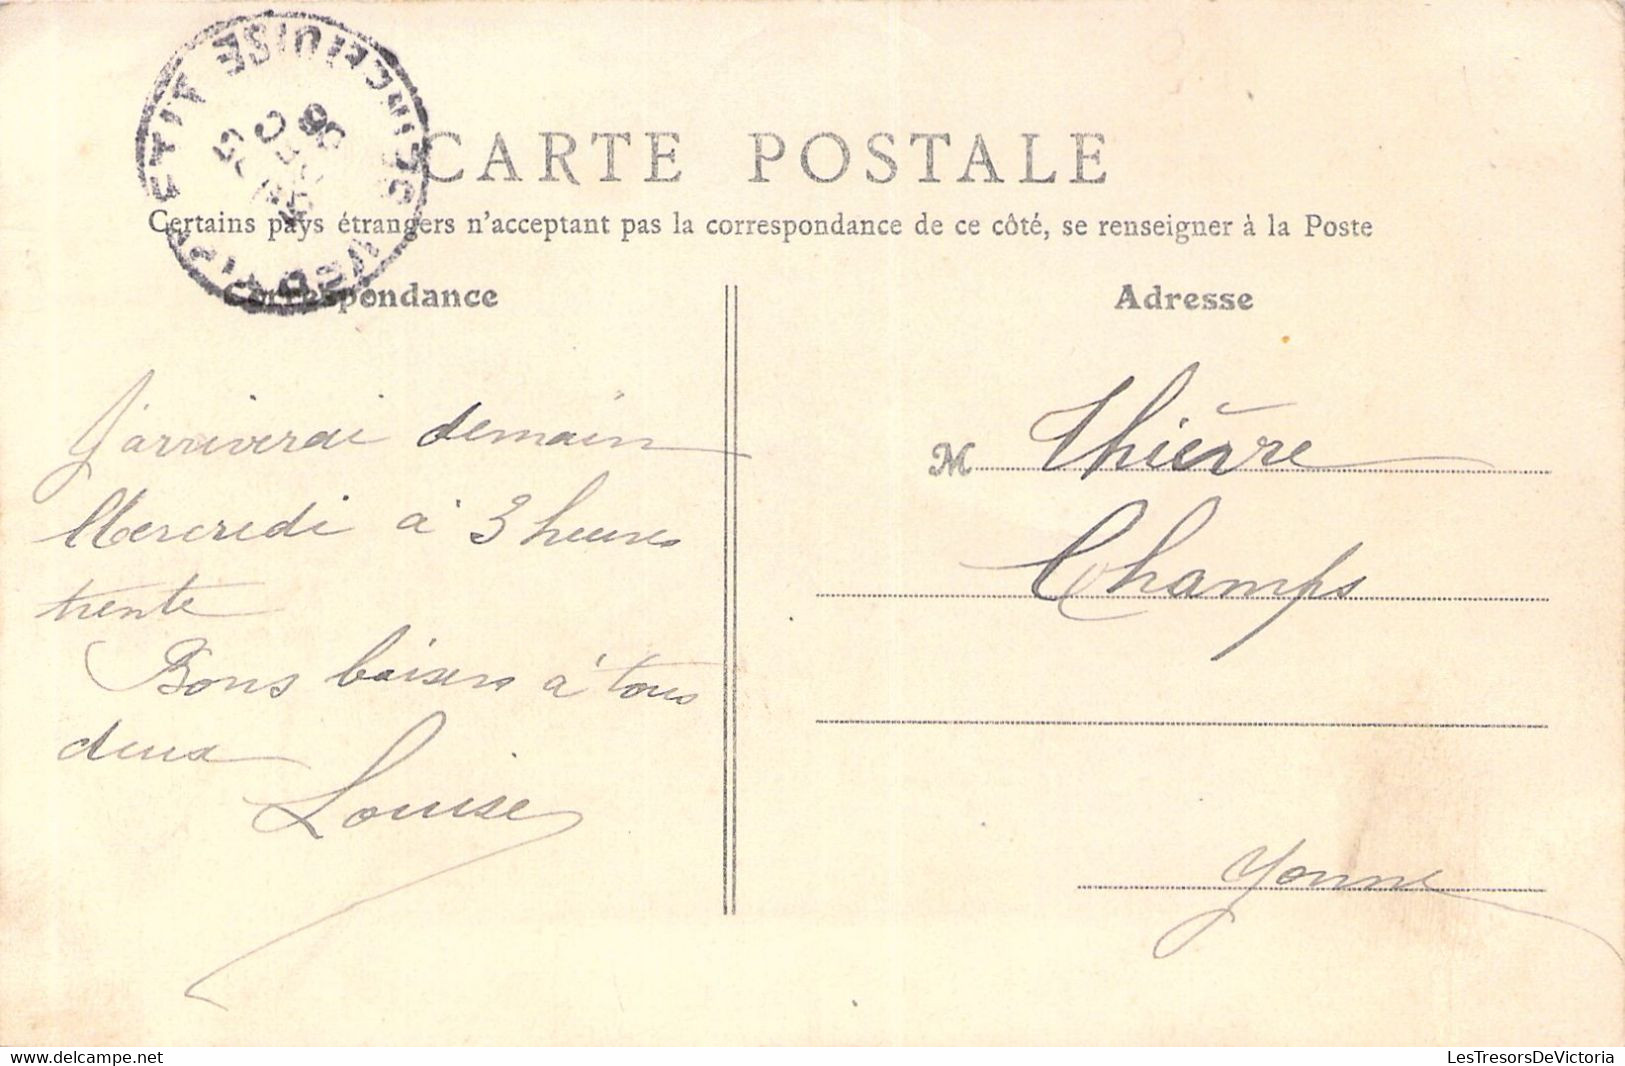 CARTE POSTALE
Certains pays étrangers n'acceptant pas la correspondance de ce côté, se renseigner à la Poste
Correspondance
J'arriverai demain
Mercredi à 3 heures
trente
Bons baisers à tous
deux
Louise
Adresse
M Thièrre
Champs
Yonne
delcampe.net
LesTresorsDeVictoria